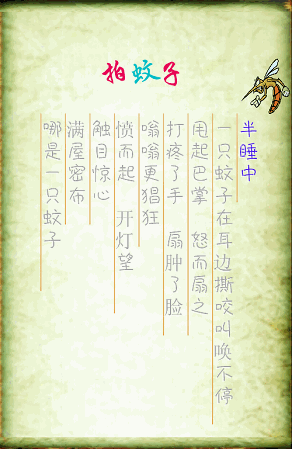 拍蚊子
半睡中
一只蚊子在耳边撕咬叫唤不停
甩起巴掌 怒而扇之
打疼了手 扇肿了脸
嗡嗡更猖狂
愤而起 开灯望
触目惊心
满屋密布
哪是一只蚊子